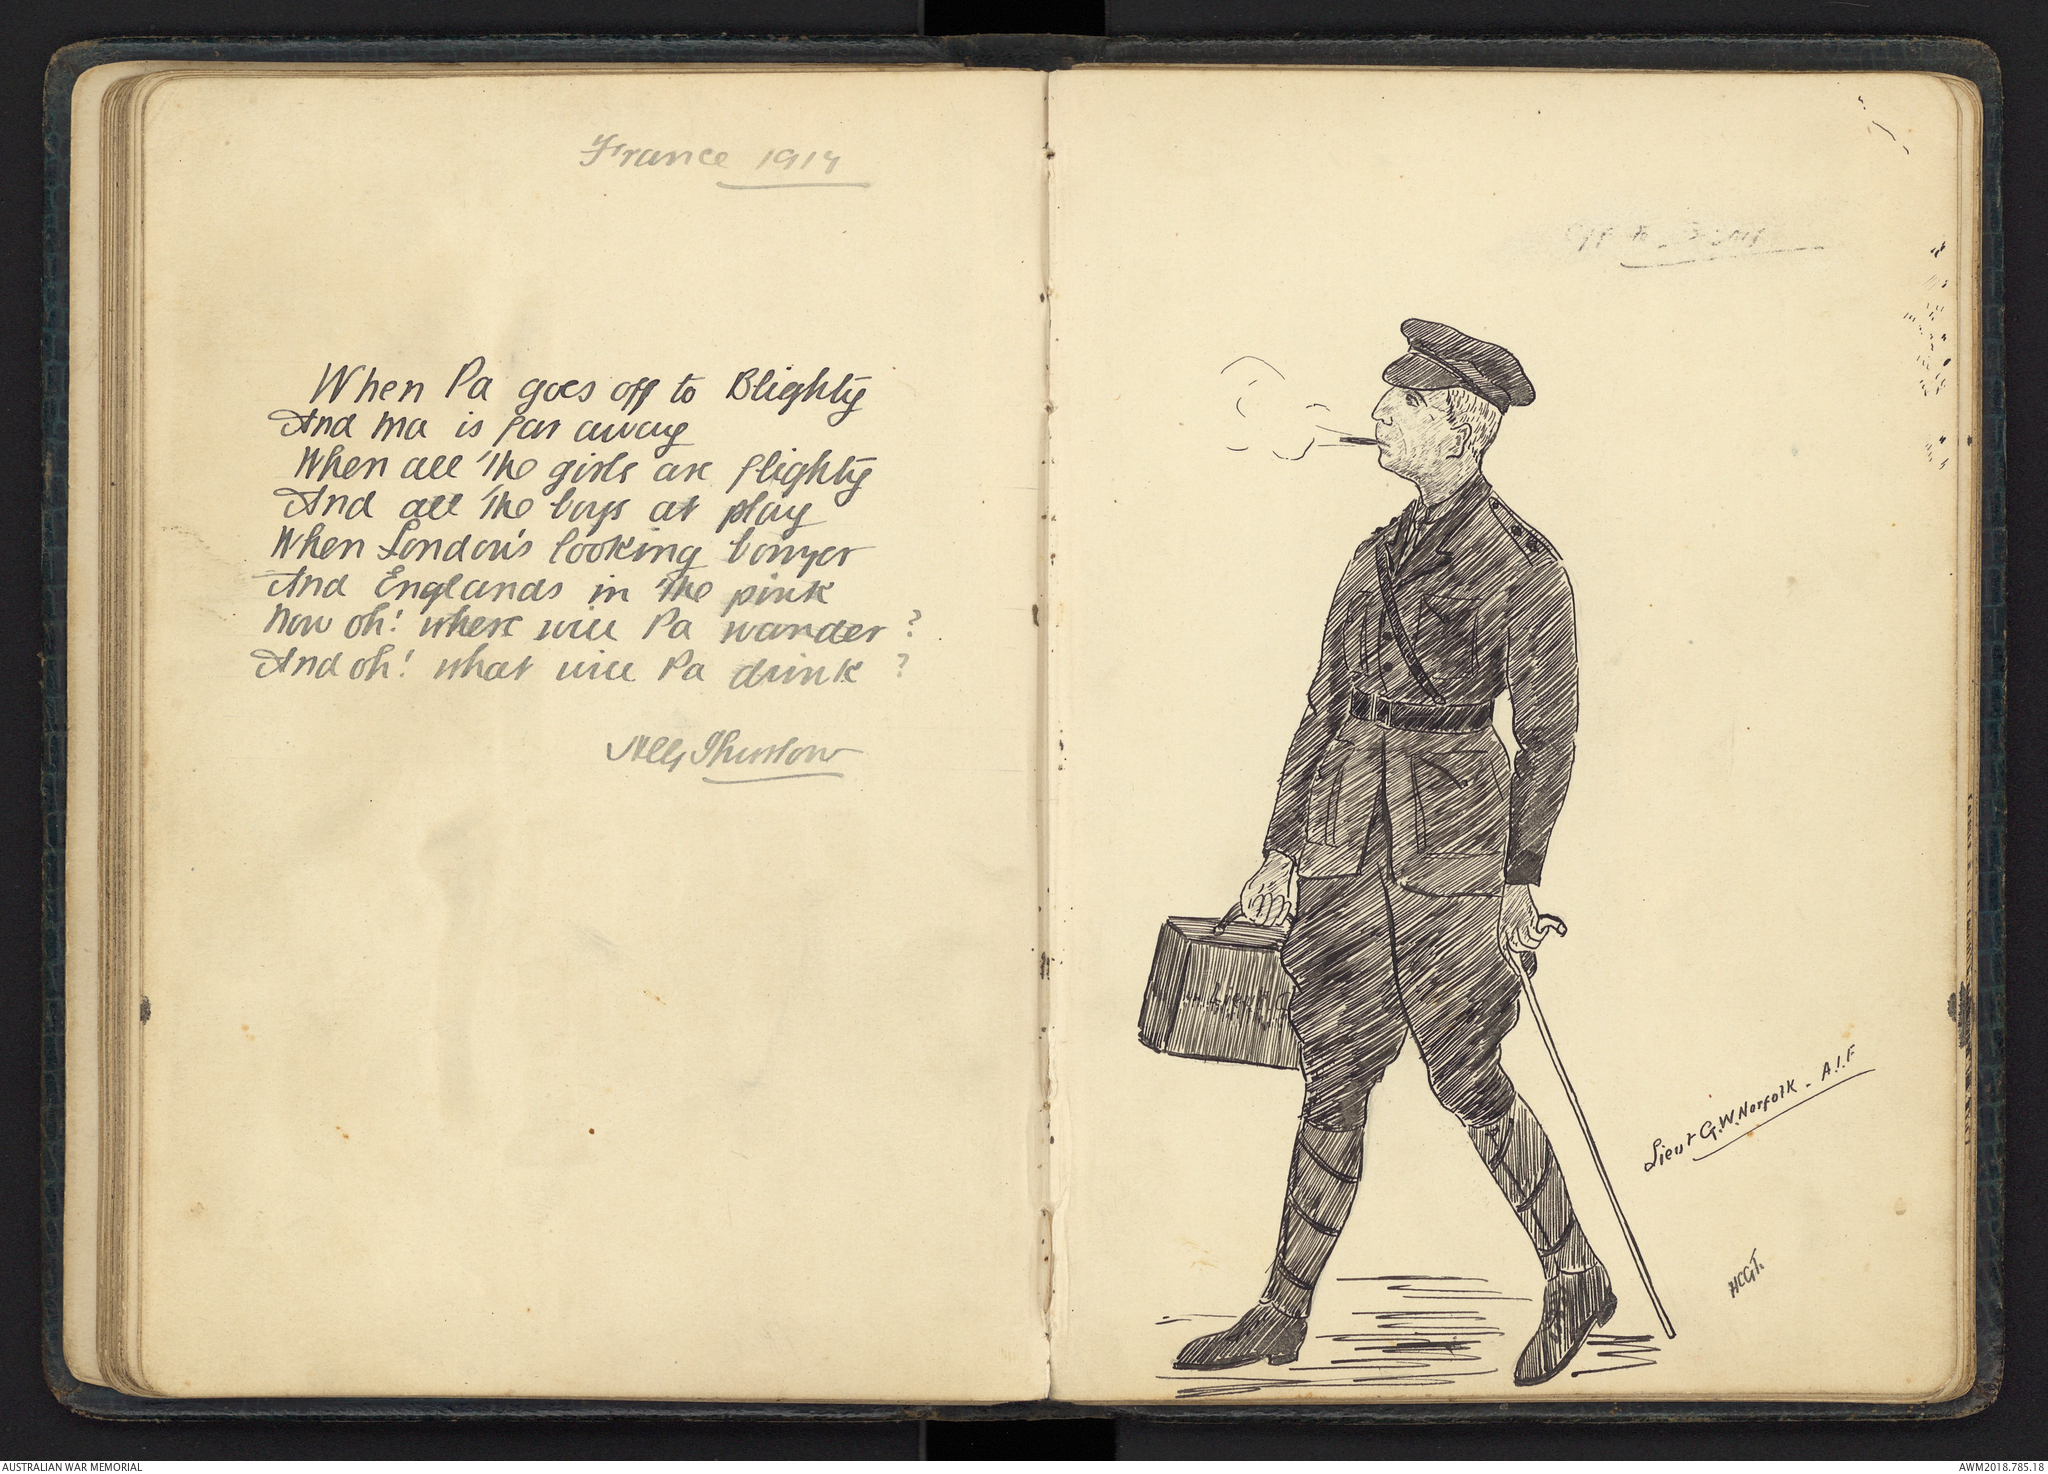 France 1917
When Pa goes off to Blighty
And Ma is far away
When all the girls are flighty
And all the boys at play
When London's looking bonyer
And Englands in the pink
Now oh! where will Pa wander ?
And oh! what will Pa drink ?
Thurlow
Lieut G.W. Norfolk - A.I.F
HCGT.
AUSTRALIAN WAR MEMORIAL
AWM2018.785.18